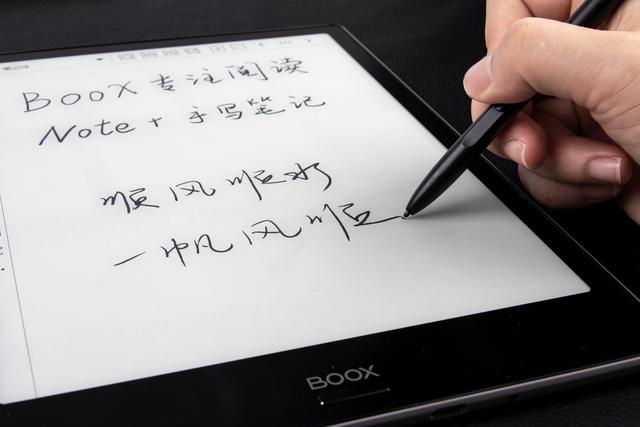 1/1
BOOX 专注阅读
Note + 手写笔记
顺风顺水
一帆风顺
BOOX